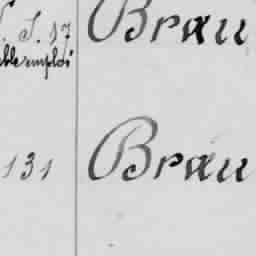 S. 17 Brau
131 Brau